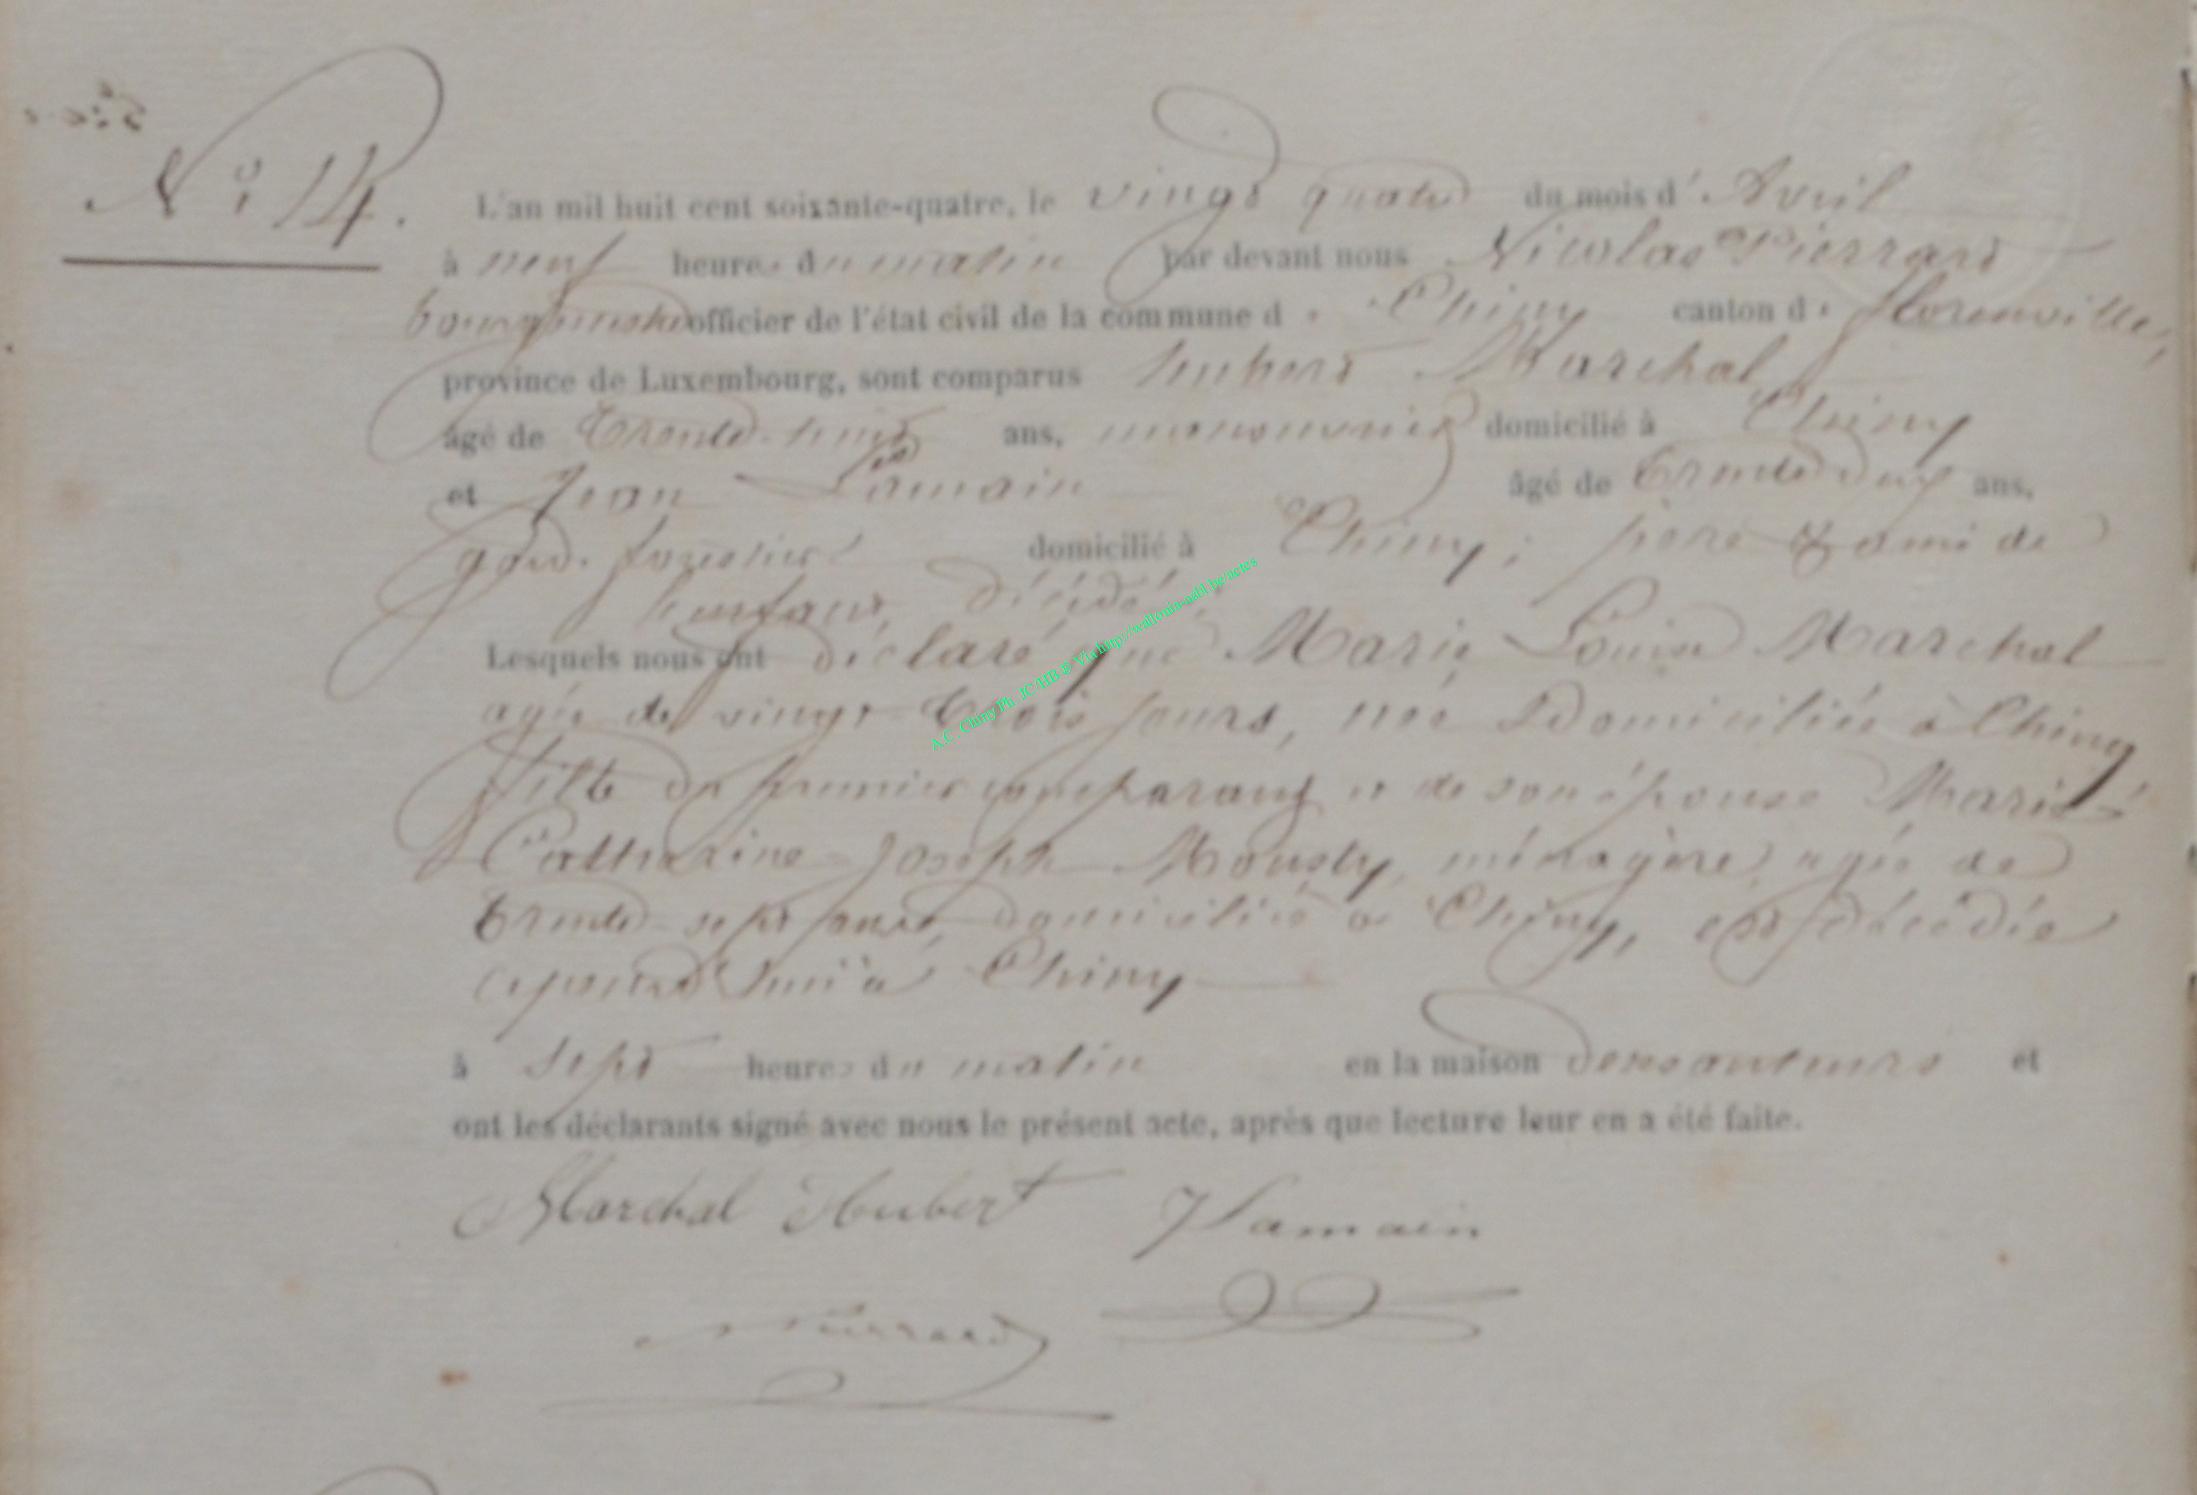 N° 14.
L'an mil huit cent soixante-quatre, le vingt quatre du mois d'Avril
à neuf heures du matin par devant nous Nicolas Pierrard
bourgmestre officier de l'état civil de la commune de Chiny canton de florenville,
province de Luxembourg, sont comparus hubert Marchal
âgé de trente-huit ans, manouvrier domicilié à Chiny
et Jean Lamain âgé de trente deux ans,
garde forestier domicilié à Chiny; père & ami de
l'enfant, décédé
Lesquels nous ont déclaré que Marie Louise Marchal
agée de vingt trois jours, née & domiciliée à Chiny
fille du premier comparant et de son épouse Marie-
Catherine Joseph Mousty, ménagère, agée de
trente sept ans, domiciliée à Chiny, est décédée
aujourd'hui à Chiny
à sept heures du matin en la maison de ses auteurs et
ont les déclarants signé avec nous le présent acte, après que lecture leur en a été faite.
Marchal Hubert J Lamain
Pierrard
A.C. Chiny Ph. JC/HB © Via http://wallonia-asbl.be/actes